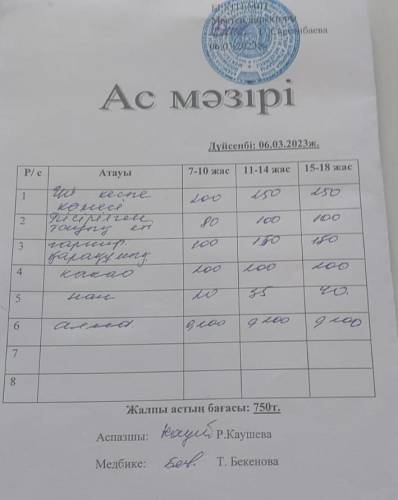 Мектеп директоры
06.03.2023ж.
Ас мәзірі
Дүйсенбі: 06.03.2023ж.
Р/с Атауы 7-10 жас 11-14 жас 15-18 жас
1 Үй кеспе көжесі 200 250 250
2 Пісірілген тауық еті 80 100 100
3 гарнир қарақұмық 100 150 180
4 какао 200 200 200
5 нан 20 35 40.
6 алма 200 200 200
7
8
Жалпы астың бағасы: 750т.
Аспазшы: Р.Каушева
Медбике: Т. Бекенова